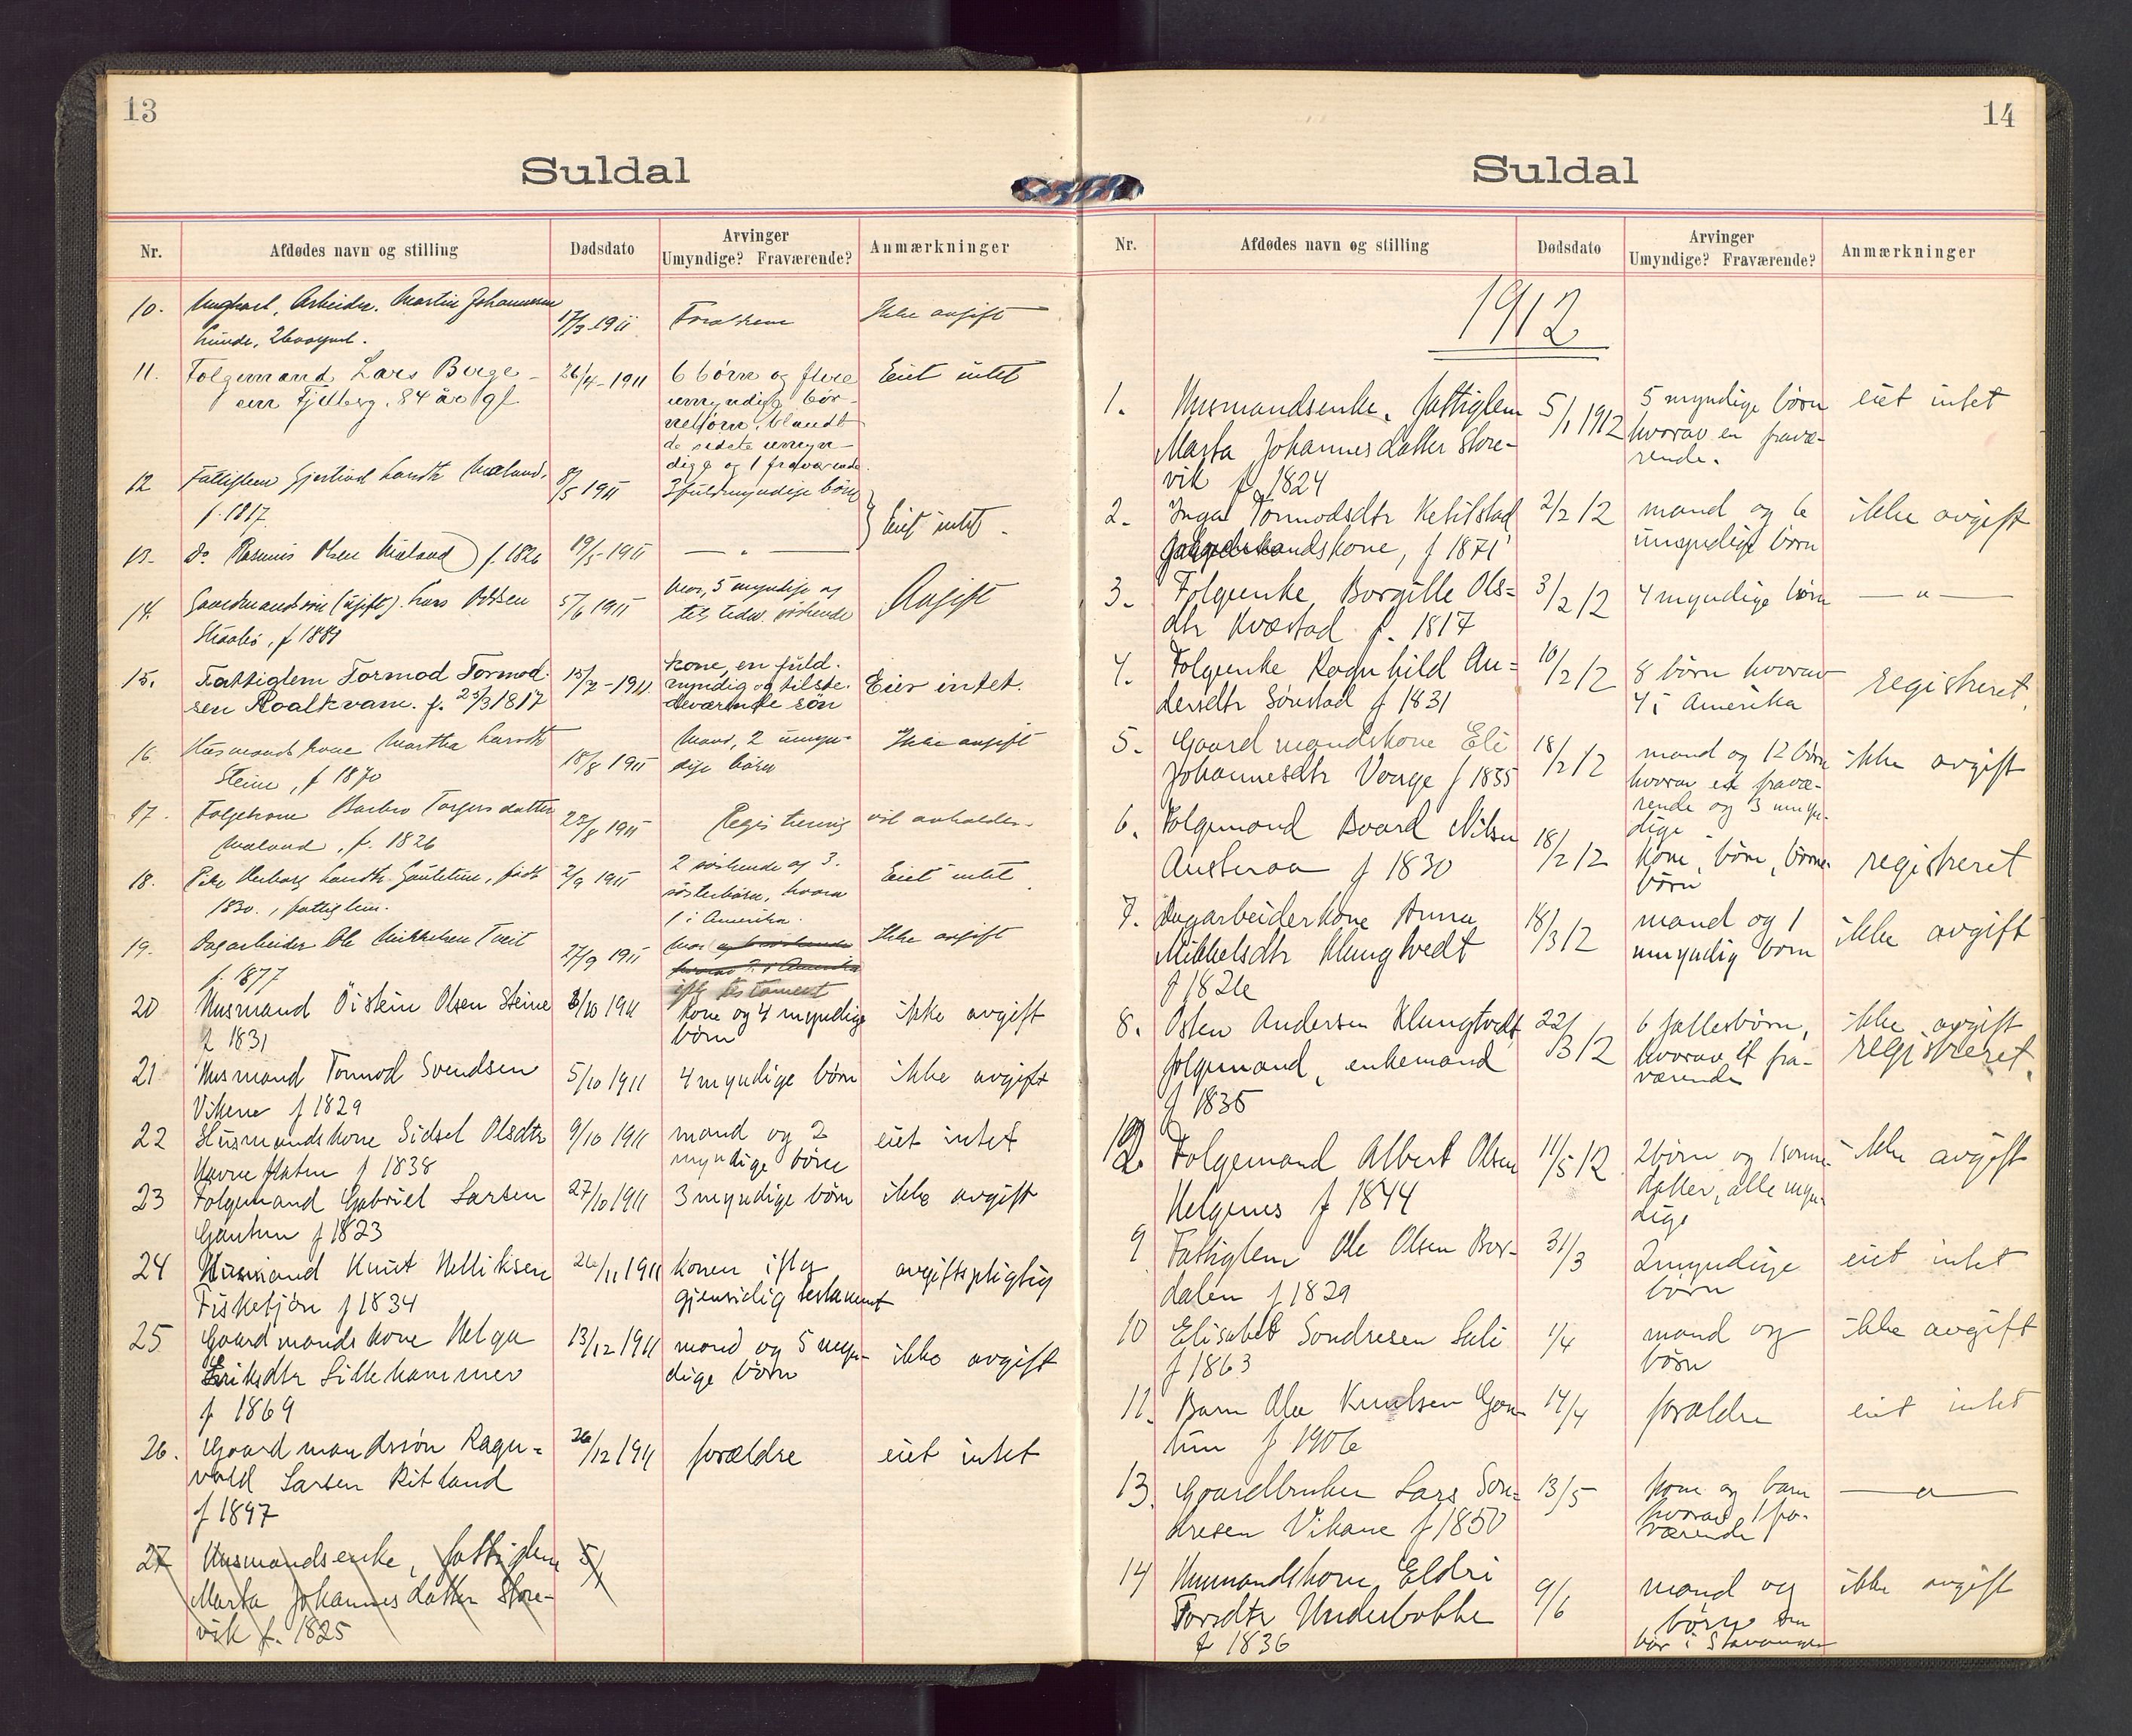 13
Suldal
Nr.
Afdødes navn og stilling
Dødsdato
Arvinger
Umyndige? Fraværende?
Anmærkninger
10.
Ungkarl, Arbeider. Martin Johannesen
17/3-1911
Forældrene
Ikke avgift
11.
Folgemand Lars Birge-
sen Fjelberg. 84 år gl.
26/4-1911
6 børn og flere
umyndige bør-
nebørn, blandt
de sidste umyn-
dige og 1 fraværende.
Eiet intet
12
Fattiglem Gjertrud Larsdtr Mæland,
f. 1817
8/5 1911
3 fuldmyndige børn
Eiet intet.
13.
Do Rasmus Olsen Mæland f. 1826
19/5-1911
— " —
14.
Gaardmandssøn (ugift). Lars Oddsen
f 1889
5/6 1911
Mor, 5 myndige og
søskende
Avgift
15.
Fattiglem Tormod Tormod-
sen Roalkvam. f. 25/3 1817
15/7-1911
kone, en fuld-
myndig og tilste-
deværende søn
Eier intet.
16.
Husmandskone Martha Larsdtr
Steine, f 1870
18/8 1911
Mand, 2 umyn-
dige børn
Ikke avgift
17.
Folgekone Barbro Torgersdatter
Mæland, f. 1826
22/8 1911
Registrering
vil avholdes.
18.
Pike Herborg Larsdtr Gautetun, født
1830., fattiglem.
2/9 1911
2 søskende og 3
søsterbørn, hvorav
1 i Amerika.
Eiet intet.
19.
Dagarbeider Ole Mikkelsen Tveit
f. 1877
27/9 1911
Mor og søskende
hvorav i Amerika
iflg testament
Ikke avgift
20
Husmand Øistein Olsen Steine
f 1831
3/10 1911
Kone og 4 myndige
børn
ikke avgift
21
Husmand Tormod Svendsen
Vikene f 1829
5/10 1911
4 myndige børn
ikke avgift
22
Husmandskone Sidsel Olsdtr
Havrefloten f 1838
9/10 1911
mand og 2
myndige børn
eiet intet
23
Folgemand Gabriel Larsen
Gautun f 1823
27/10 1911
3 myndige børn
ikke avgift
24
Husmand Knut Helliksen
Fisketjøn f 1834
26/11 1911
konen iflg
gjensidig testament
avgiftspligtig
25
Gaardmandskone Helga
Eriksdtr Litlehammer
f 1869
13/12 1911
mand og 5 myn-
dige børn
ikke avgift
26.
Gaardmandssøn Ragn-
vald Larsen Ritland
f 1897
26/12 1911
forældre
eiet intet
27
Husmandsenke, fattiglem
Marta Johannesdatter Store-
vik f. 1825
5/1
14
Suldal
Nr.
Afdødes navn og stilling
Dødsdato
Arvinger
Umyndige? Fraværende?
Anmærkninger
1912
1.
Husmandsenke, fattiglem
Marta Johannesdatter Store-
vik f. 1824
5/1 1912
5 myndige børn
hvorav en fravæ-
rende.
eiet intet
2.
Inga Tormodsdtr Ketilstad
Gaardmandskone, f 1871
2/2 12
mand og 6
umyndige børn
ikke avgift
3.
Folgeenke Borgille Ols-
dtr Kvæstad f. 1817
3/2 12
4 myndige børn
— " —
4.
Folgeenke Ragnhild An-
dersdtr Sørestad f 1831
10/2 12
8 børn hvorav
4 i Amerika
registreret.
5.
Gaardmandskone Eli
Johannesdtr Vaage f 1835
18/2 12
mand og 12 børn
hvorav et fravæ-
rende og 3 umyn-
dige
ikke avgift
6.
Folgemand Baard Nilsen
Austeraa f 1830
18/2 12
kone, børn, børne-
børn
registreret
7.
Dagarbeiderkone Anna
Mikkelsdtr Klungtvedt
f 1826
18/3 12
mand og 1
umyndig børn
ikke avgift
8.
Osten Andersen Klungtvedt
folgemand, enkemand
f 1835
22/3 12
6 fællesbørn,
hvorav et fra-
værende
ikke avgift
registreret.
12.
Folgemand Albert Olsen
Helgenes f 1844
11/5 12
2 børn og 1 sønne-
datter, alle myn-
dige
ikke avgift
9
Fattiglem Ole Olsen Bor-
dalen f 1829
31/3
2 myndige
børn
eiet intet
10
Elisabet Sondresen Suli
f 1863
1/4
mand og
børn
ikke avgift
11.
Barn Ola Knudsen Gau-
tun f 1906
14/4
forældre
eiet intet
13.
Gaardbruker Lars Son-
dresen Vikane f 1850
13/5
kone og barn
hvorav 1 fra-
værende
— " —
14
Husmandskone Eldri
Torsdtr Underbakke
f 1836
9/6
mand og
børn som
bor i Stavanger
ikke avgift